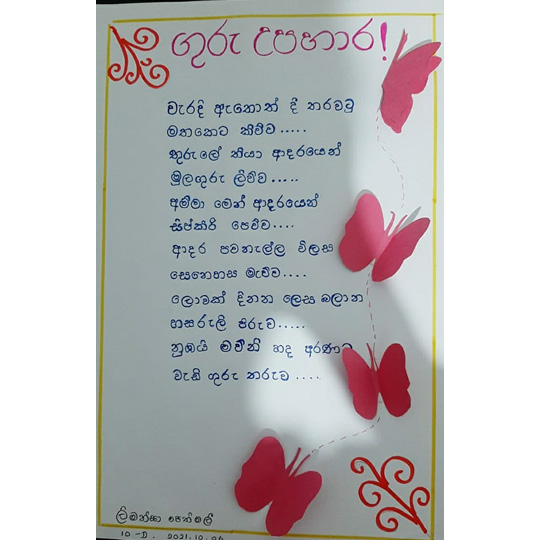 ගුරු උපහාර!
වැරදි ඇතොත් දී තරවටු
මතකෙට කිව්ව.....
තුරුලේ තියා ආදරයෙන්
මුලගුරු ලිව්ව.....
අම්මා මෙන් ආදරයෙන්
සිප්කිරි පෙව්ව....
ආදර පවනැල්ල විලස
සෙනෙහස මැව්ව....
ලොවක් දිනන ලෙස බලාන
හසරැලි පිරුව.....
නුඹයි මව්නි හද අරණට
වැඩි ගුරු තරුව....
ලිමන්සා නෙත්මලී
10-D. 2021.10.06